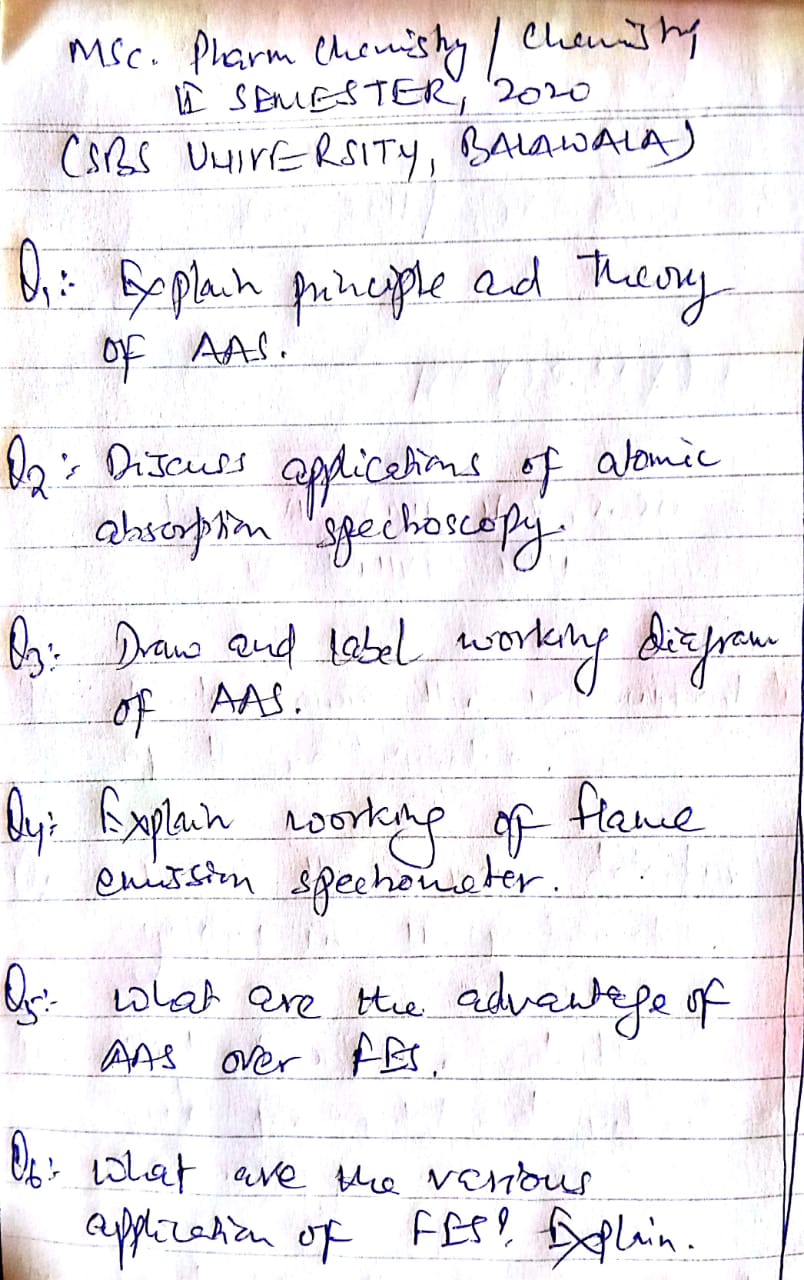 MSc. Pharm Chemistry / Chemistry
II SEMESTER, 2020
(SBS UNIVERSITY, BALAWALA)
Q1:- Explain principle and Theory
of AAS.
Q2: Discuss applications of atomic
absorption spectroscopy.
Q3: Draw and label working diagram
of AAS.
Q4: Explain working of flame
emission spectrometer.
Q5:- What are the advantage of
AAS over FES.
Q6: What are the various
application of FES? Explain.